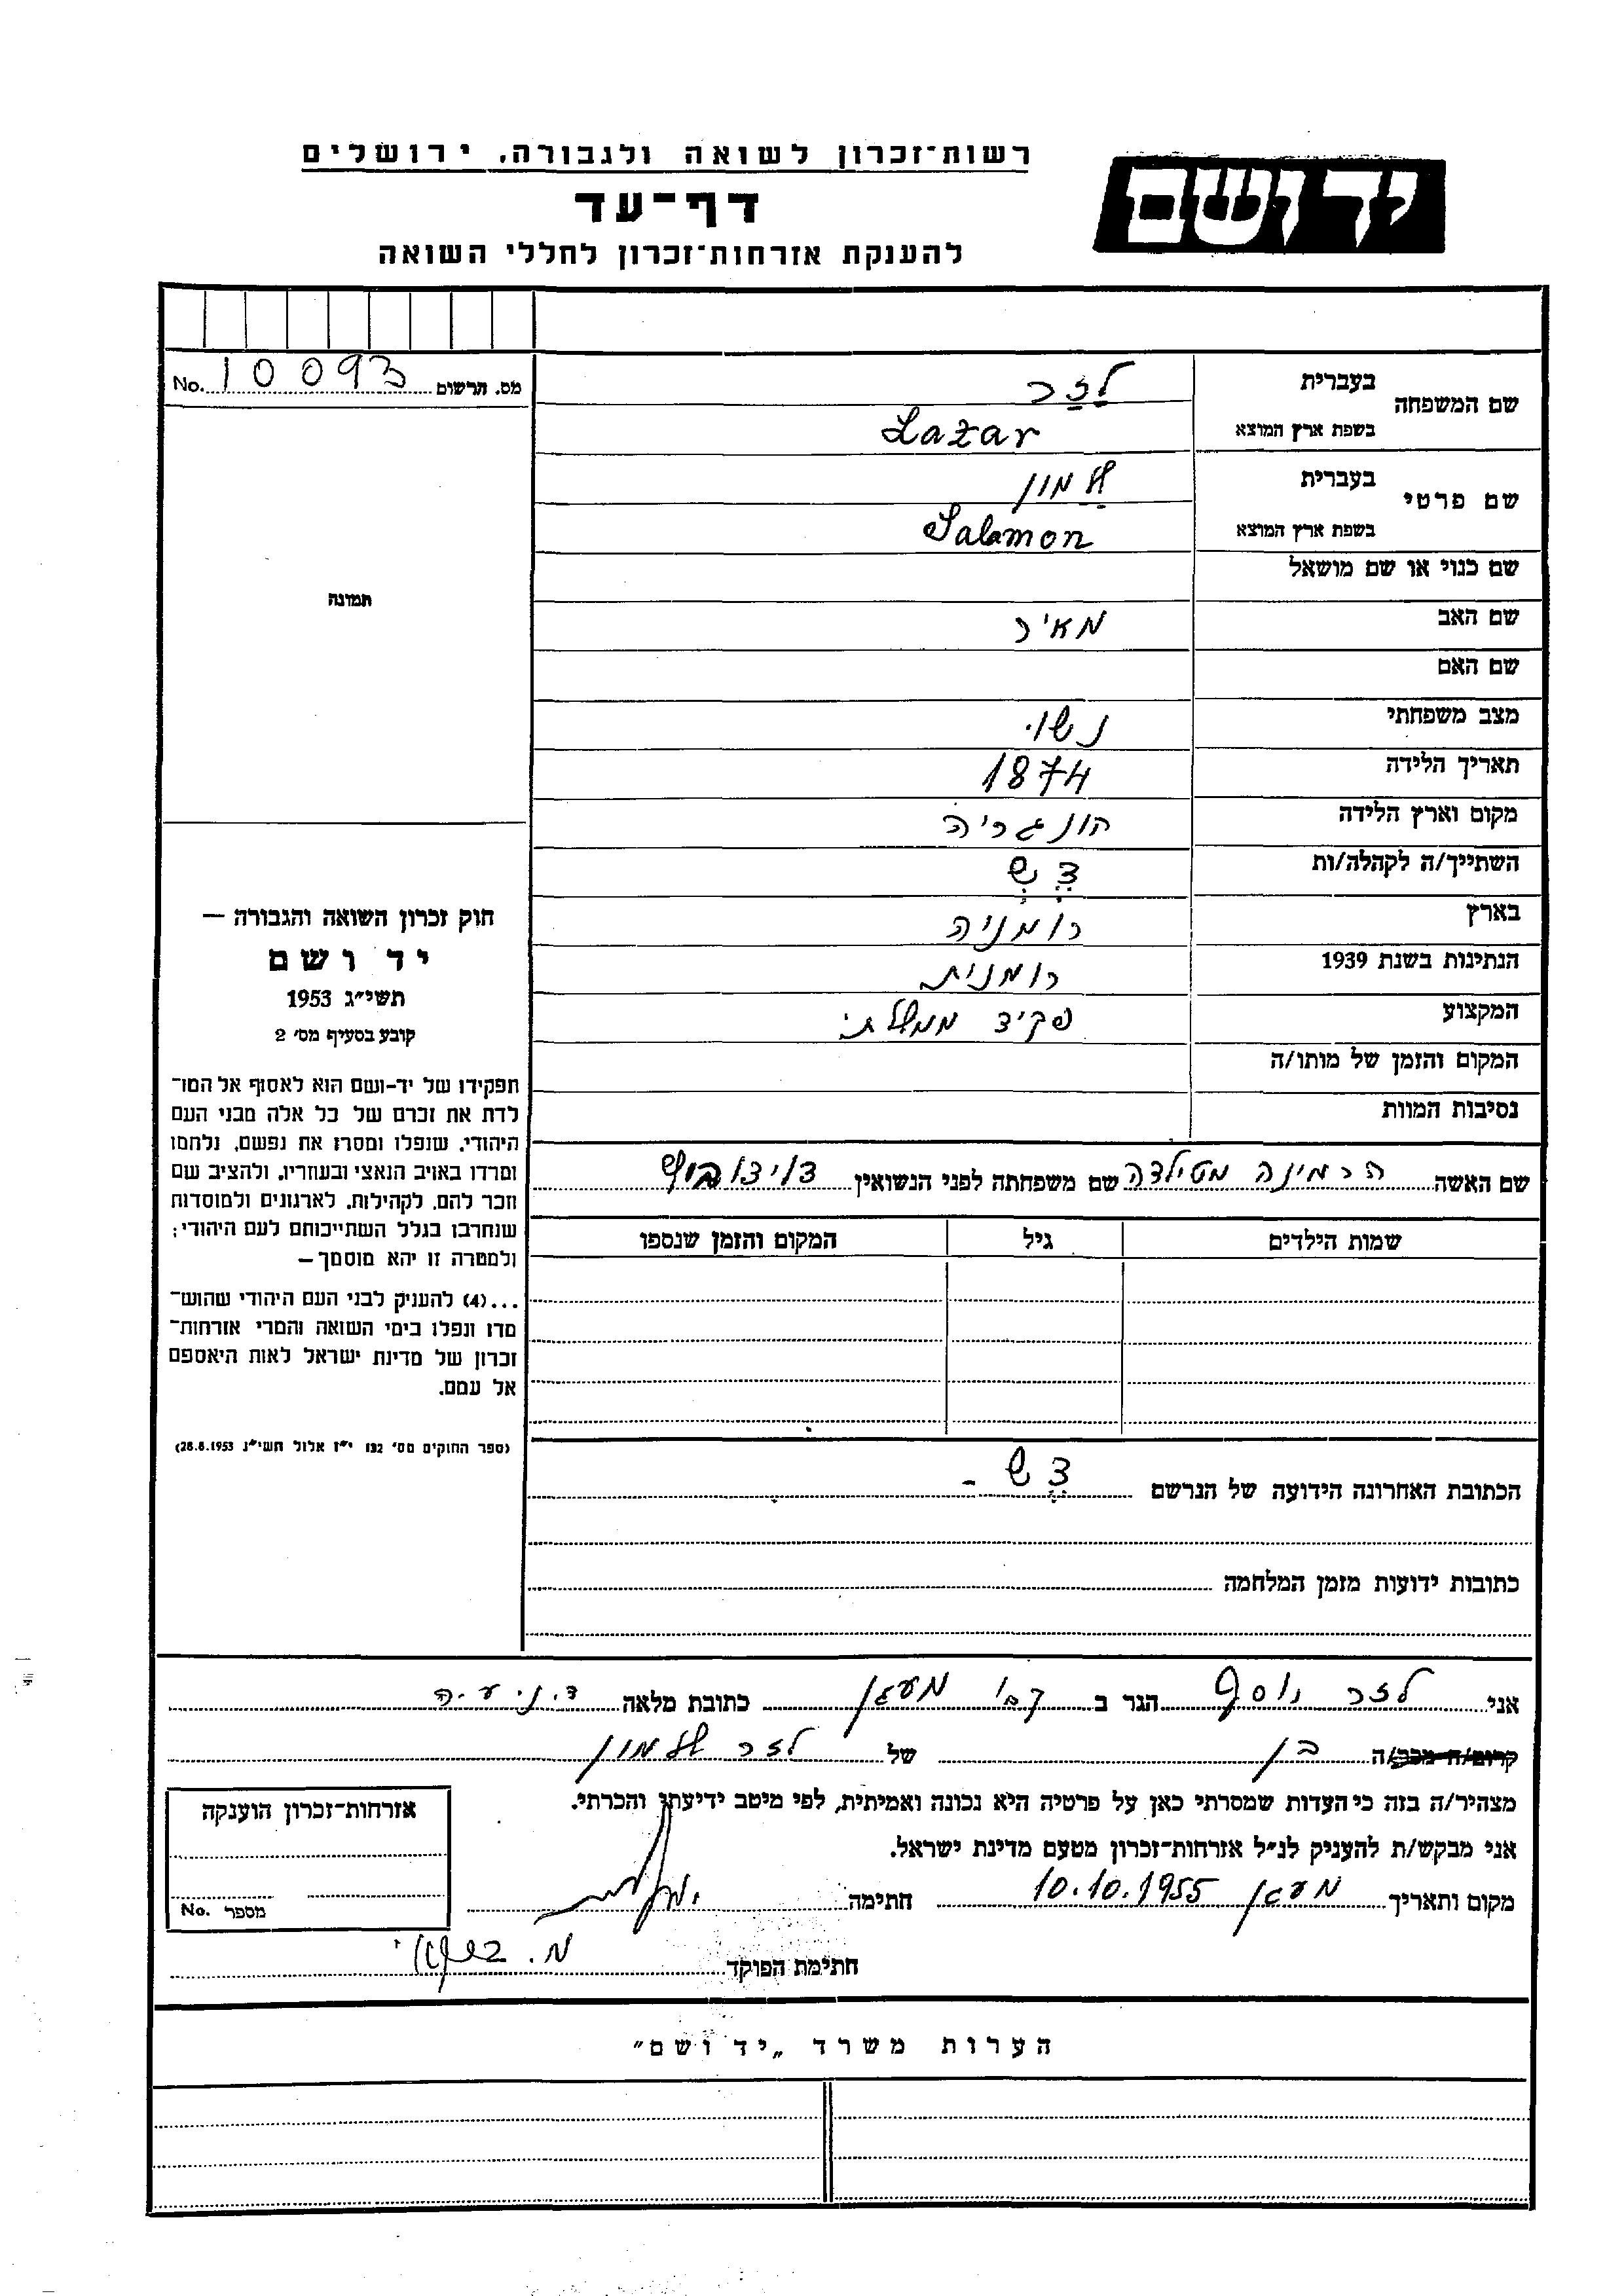 רשות־זכרון לשואה ולגבורה, ירושלים
יד ושם
דף־עד
להענקת אזרחות־זכרון לחללי השואה
מס. הרשום No. 10093
תמונה
חוק זכרון השואה והגבורה —
יד ושם
תשי״ג 1953
קובע בסעיף מס׳ 2
תפקידו של יד-ושם הוא לאסוף אל המו־
לדת את זכרם של כל אלה מבני העם
היהודי, שנפלו ומסרו את נפשם, נלחמו
ומרדו באויב הנאצי ובעוזריו, ולהציב שם
וזכר להם, לקהילות, לארגונים ולמוסדות
שנחרבו בגלל השתייכותם לעם היהודי;
ולמטרה זו יהא מוסמך—
...(4) להעניק לבני העם היהודי שהוש־
מדו ונפלו בימי השואה והמרי אזרחות־
זכרון של מדינת ישראל לאות היאספם
אל עמם.
(ספר החוקים מס׳ 132 י״ז אלול תשי״ג 28.8.1953)
שם המשפחה
בעברית לַזַר
בשפת ארץ המוצא Lazar
שם פרטי
בעברית שלמון
בשפת ארץ המוצא Salamon
שם כנוי או שם מושאל
שם האב מאיר
שם האם
מצב משפחתי נשוי
תאריך הלידה 1874
מקום וארץ הלידה הונגריה
השתייך/ה לקהלה/ות דֶש
בארץ רומניה
הנתינות בשנת 1939 רומנית
המקצוע פקיד ממשלתי
המקום והזמן של מותו/ה
נסיבות המוות
שם האשה הרמינה מטילדה שם משפחתה לפני הנשואין דוידוביץ
שמות הילדים גיל המקום והזמן שנספו
הכתובת האחרונה הידועה של הנרשם דֶש -
כתובות ידועות מזמן המלחמה
אני לזר יוסף הגר ב קב׳ מעגן כתובת מלאה ד.נ. ע.ה
קרוב/ת מכב/ה בן של לזר שלמון
מצהיר/ה בזה כי העדות שמסרתי כאן על פרטיה היא נכונה ואמיתית, לפי מיטב ידיעתי והכרתי.
אני מבקש/ת להעניק לנ״ל אזרחות־זכרון מטעם מדינת ישראל.
מקום ותאריך מעגן 10.10.1955 חתימה
אזרחות־זכרון הוענקה
מספר No.
חתימת הפוקד
הערות משרד „יד ושם״